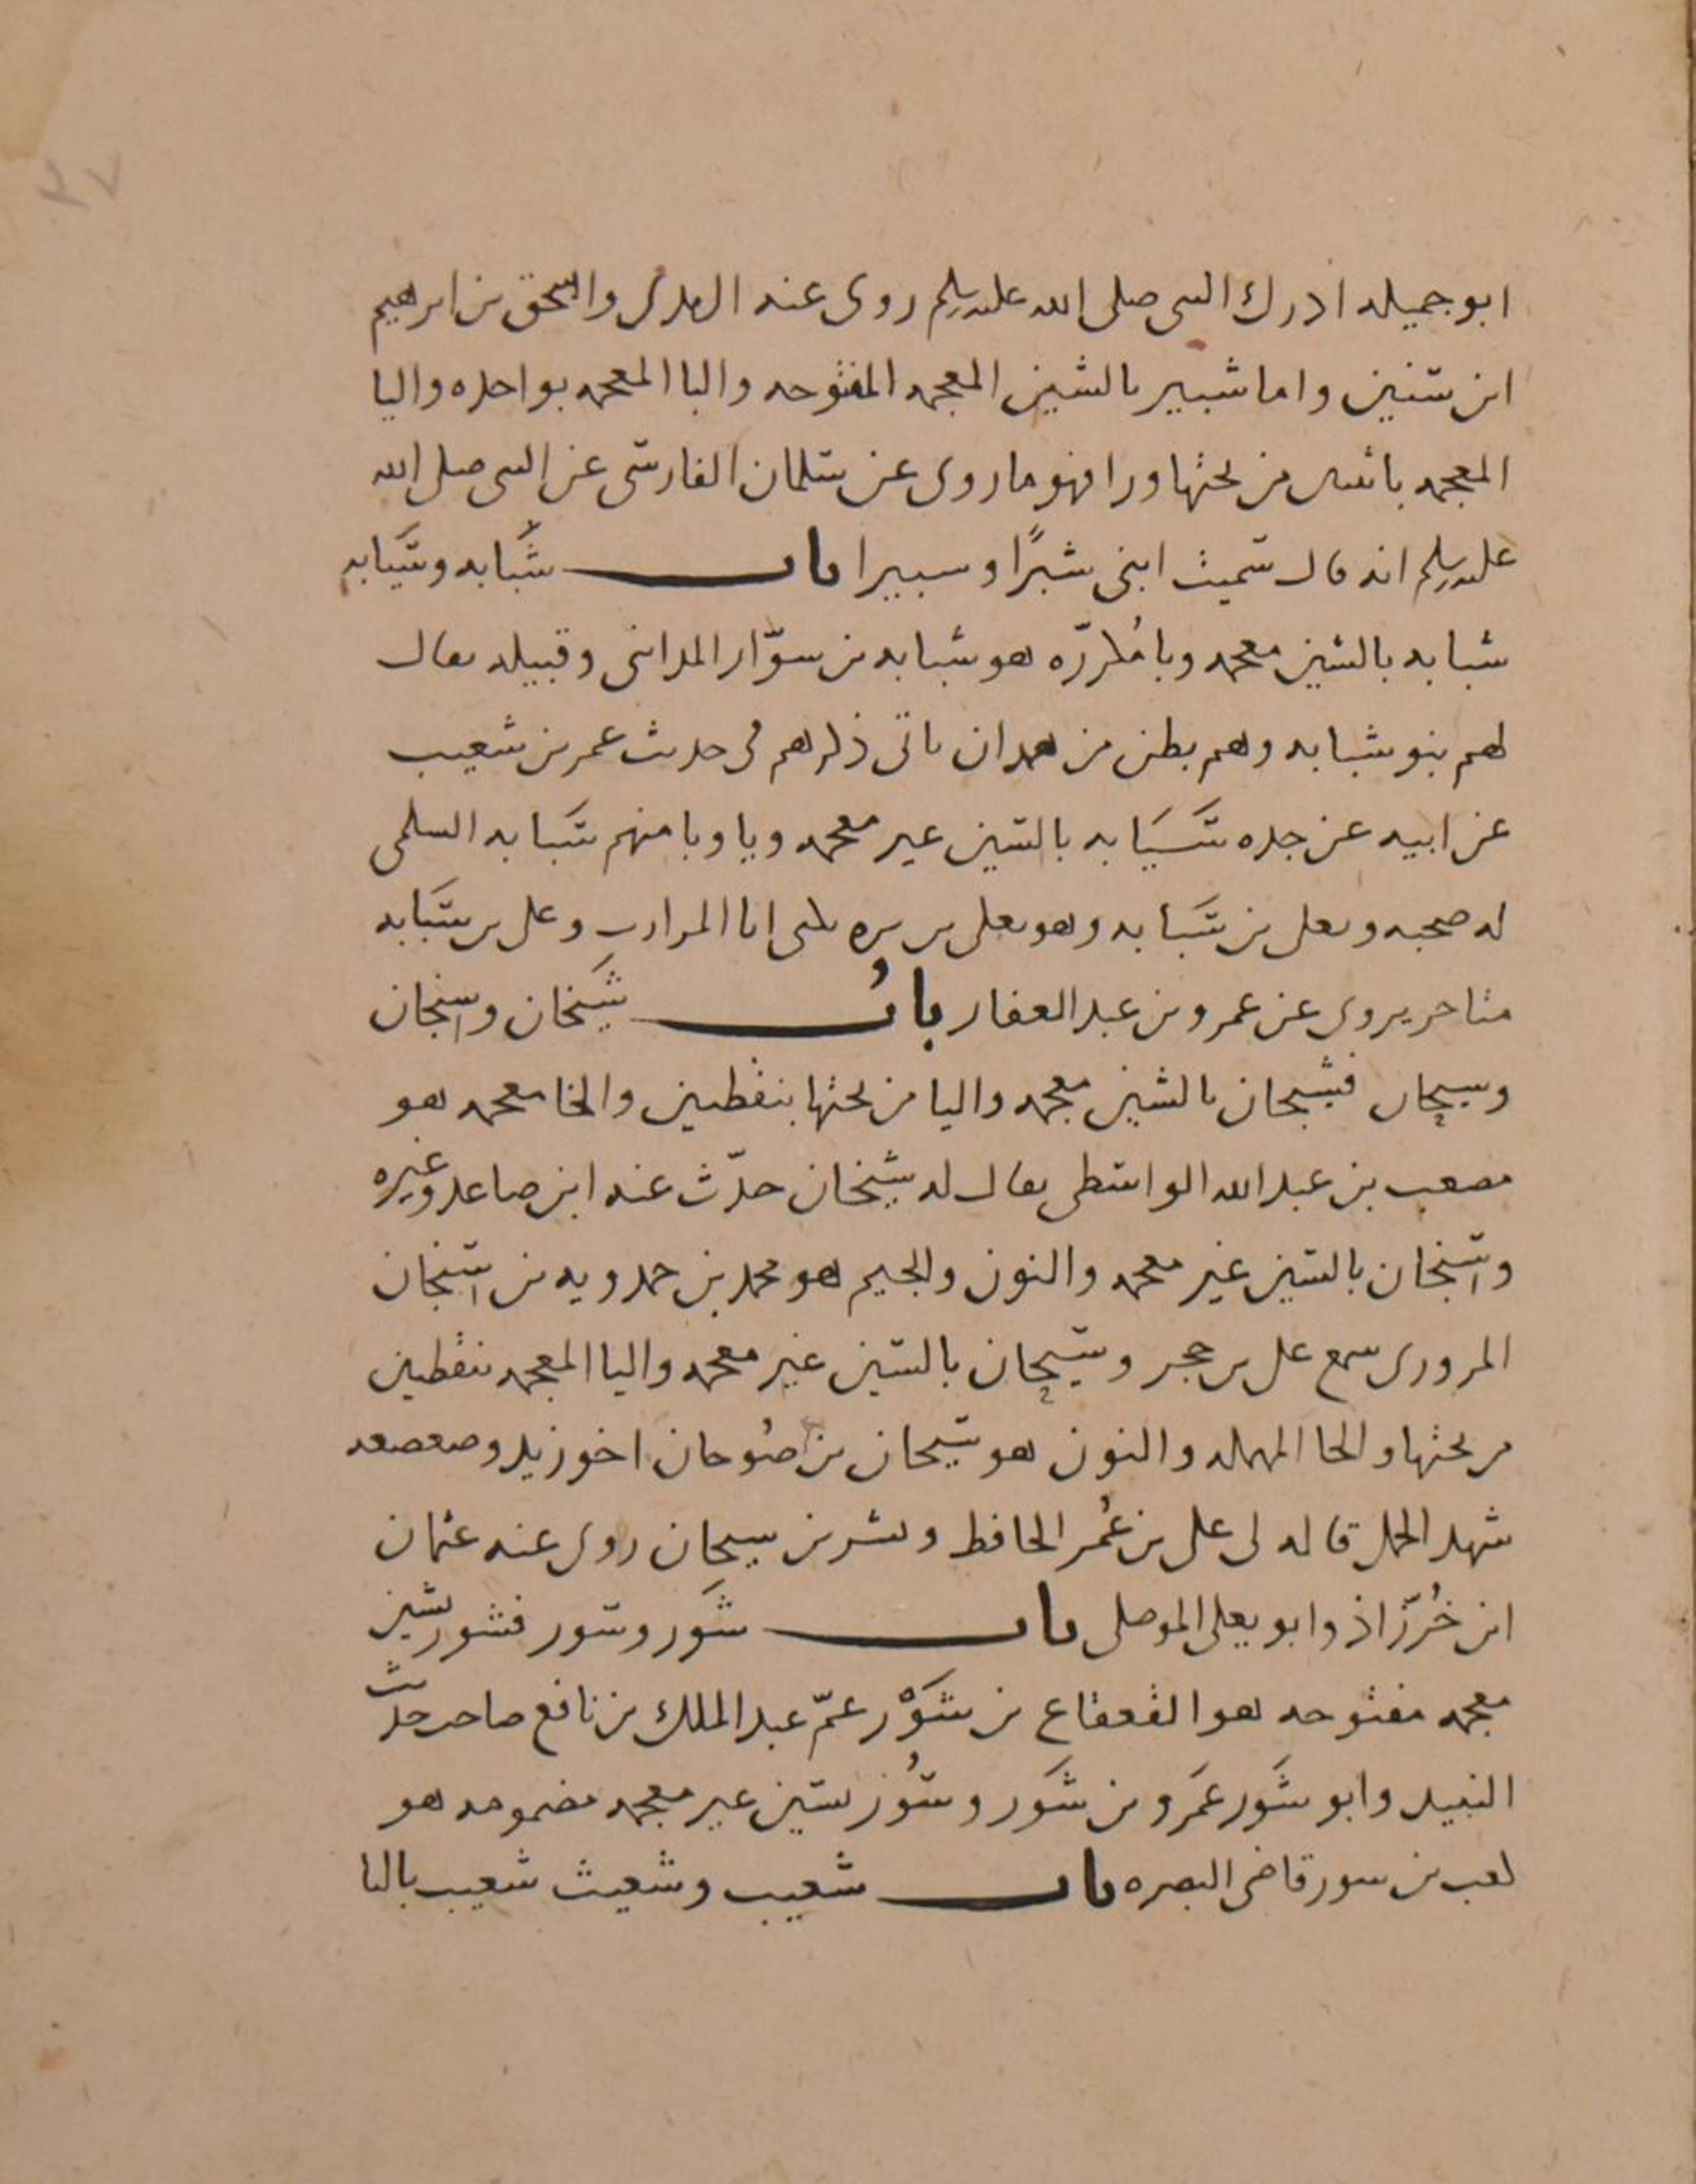 ابو جميله ادرك النبى صلى الله عليه وسلم روى عنه الزهرى واسحق بن ابرهيم
ابن سنين واما شبير بالشين المعجمه المفتوحه والبا المعجمه بواحده واليا
المعجمه باثنين من تحتها ورا فهو ما روى عن سلمان الفارسى عن النبى صلى الله
عليه وسلم انه قال سميت ابنى شبرًا وشبيرا باب شَبابه وسَيابه
شبابه بالشين معجمه وبا مُكررّه هو شبابه بن سوّار المداينى وقبيله يقال
لهم بنو شبابه وهم بطن من همدان ياتى ذكرهم فى حديث عمر بن شعيب
عن ابيه عن جده سَيَابه بالسين غير معجمه ويا وبا منهم سَيابه السلمى
له صحبه ويعلى بن سَيابه وهو يعلى بن مره يكنى ابا المرازب وعلى بن سَيابه
متاخر يروى عن عمرو بن عبد الغفار بابُ شَيخان واسنجان
وسيحان فشيخان بالشين معجمه واليا من تحتها بنقطين والخا معجمه هو
مصعب بن عبد الله الواسطى يقال له شيخان حدّث عنه ابن صاعد وغيره
واسنجان بالسين غير معجمه والنون والجيم هو محمد بن حمدويه بن اسنجان
المروزى سمع على بن حجر وسيحان بالسين غير معجمه واليا المعجمه بنقطين
من تحتها والحا المهمله والنون هو سيحان بن صُوحان اخو زيد وصعصعه
شهد الجمل قاله لى على بن عُمر الحافظ وبشر بن سيحان روى عنه عثمان
ابن خُرّزاذ وابو يعلى الموصلى باب شَور وسور فشور بشين
معجمه مفتوحه هو القعقاع بن شَوْر عمّ عبد الملك بن نافع صاحب حديث
النبيذ وابو شَور عَمرو بن شَور وسُور بسين غير معجمه مضمومه هو
كعب بن سور قاضى البصره باب شعيب وشعيث شعيب بالبا